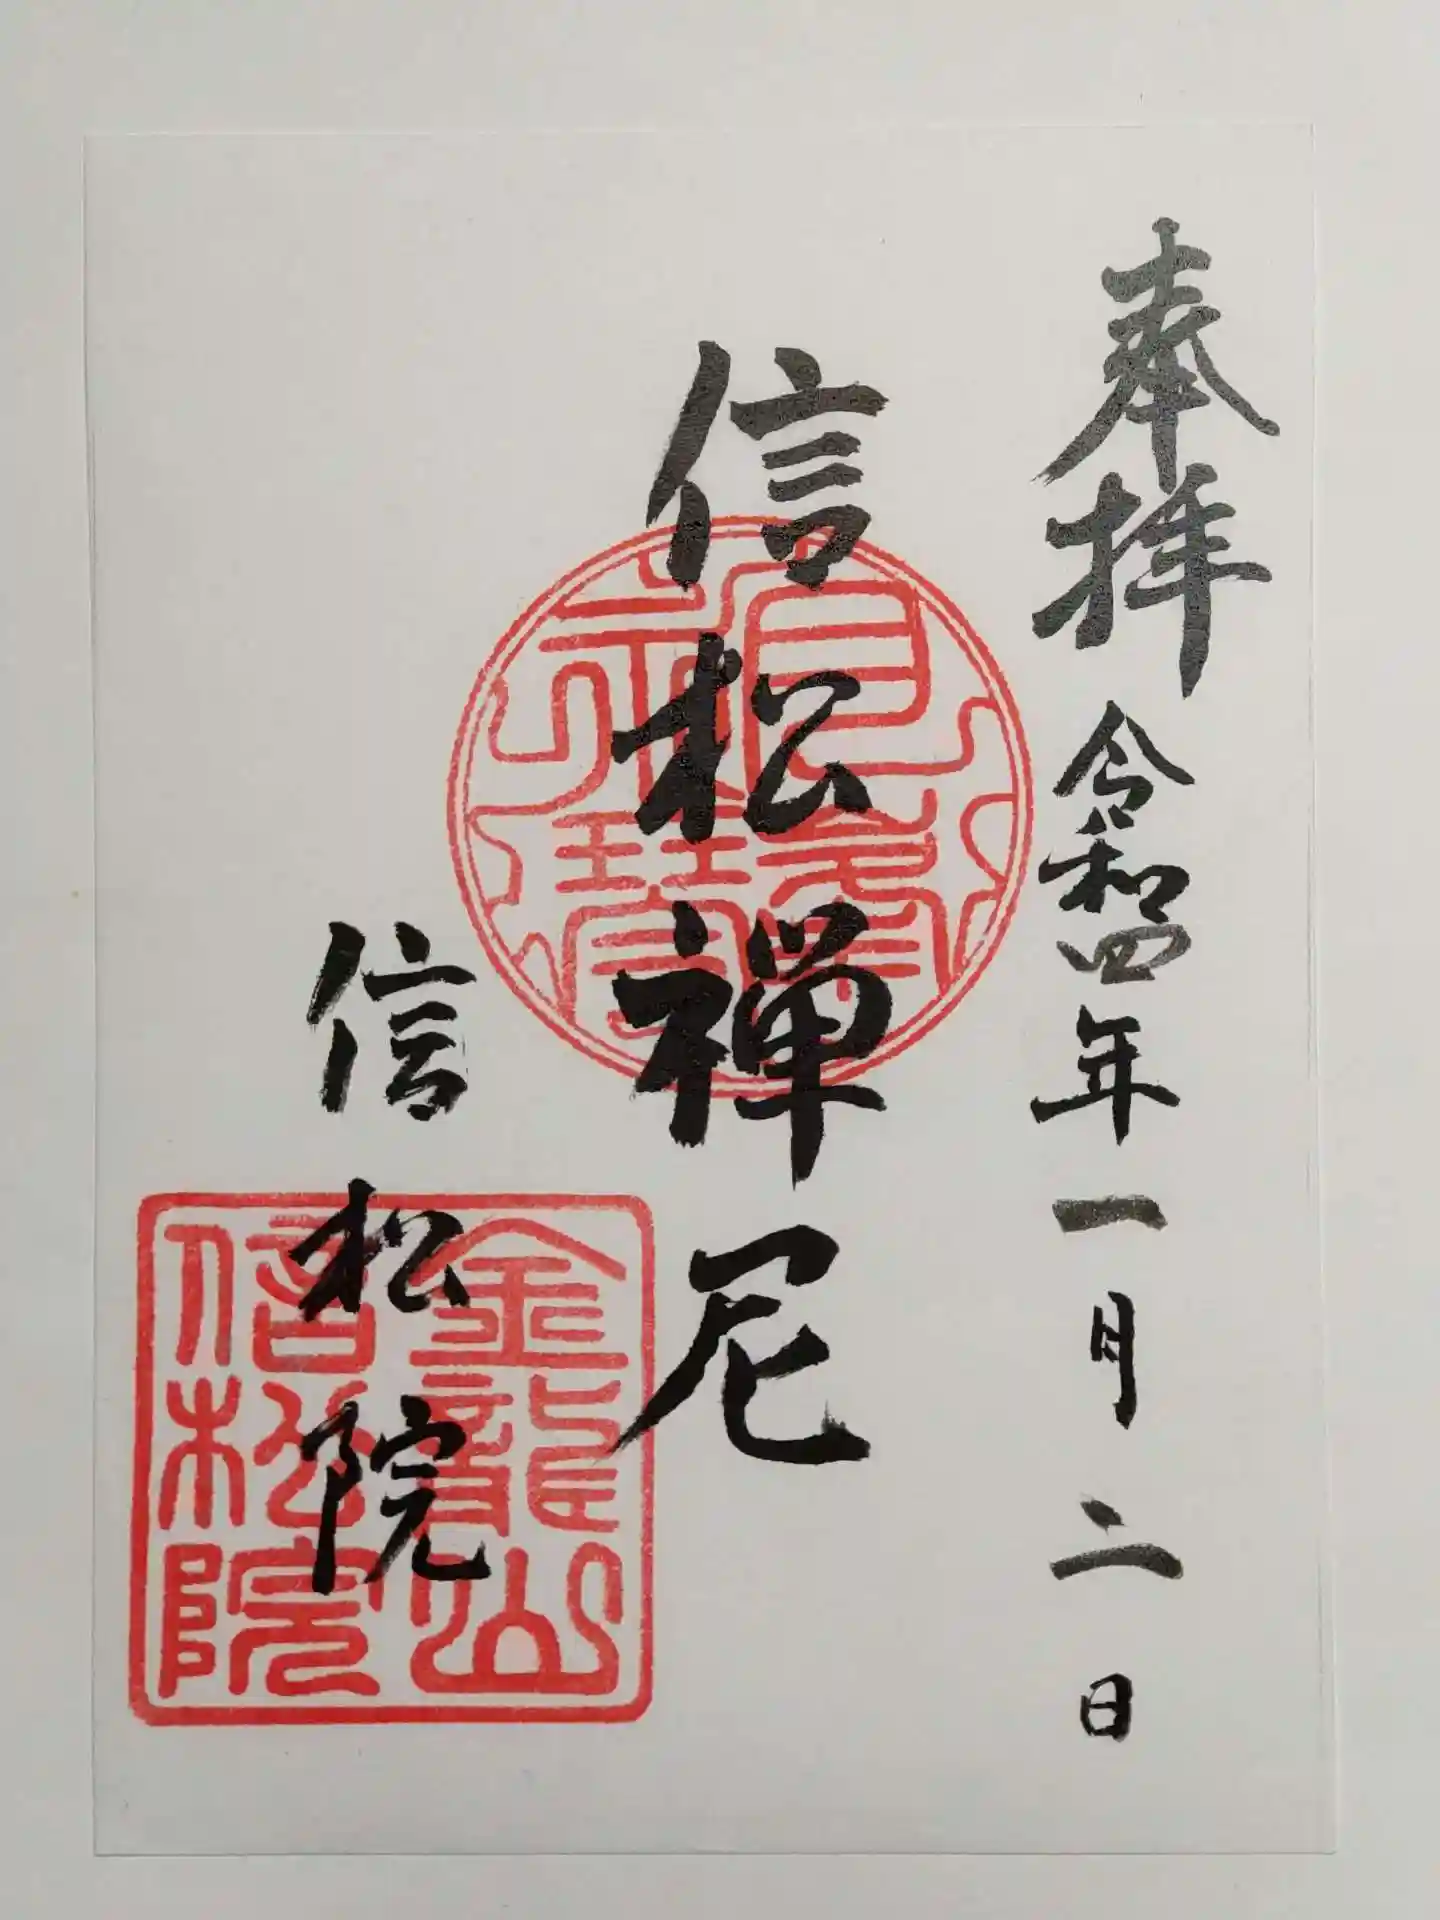 奉拝 令和四年一月二日
信松禅尼
信松院
金龍山
信松院